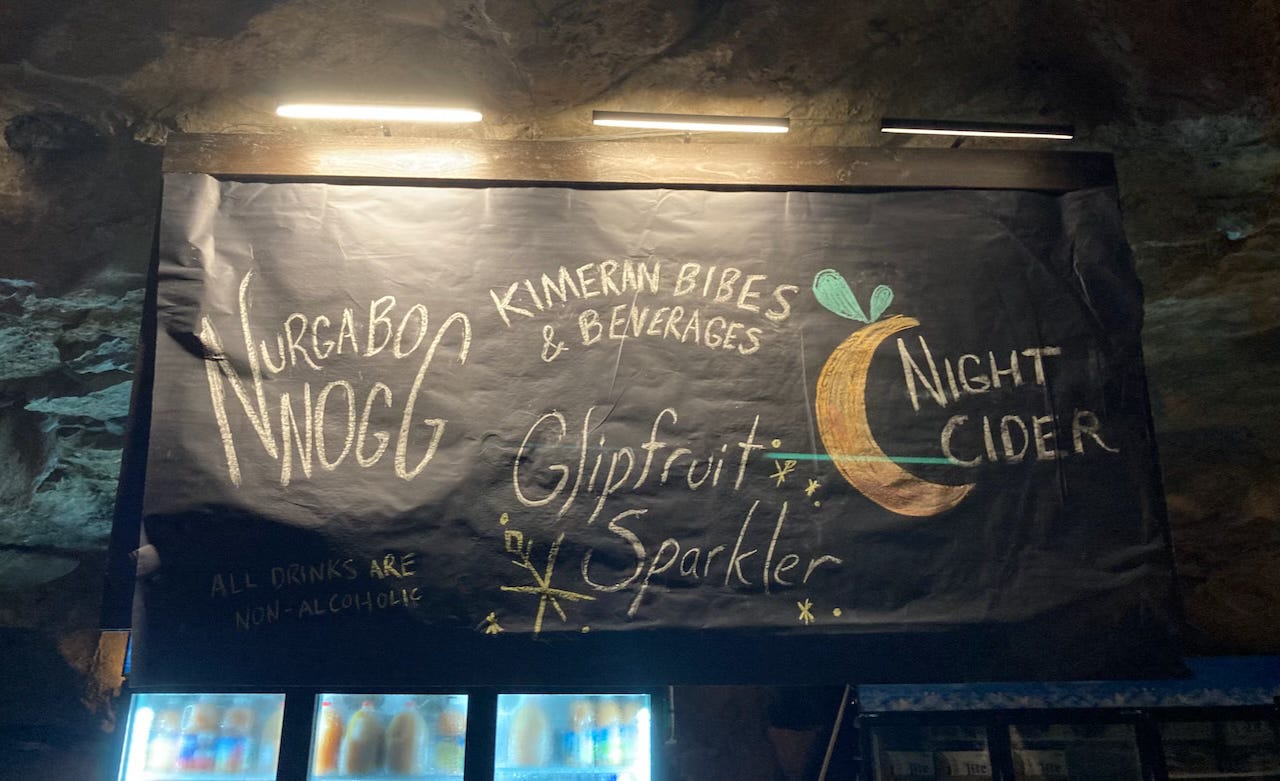 KIMERAN BIBES
& BEVERAGES
NURGABOG
NNOGG
Glipfruit
Sparkler
NIGHT
CIDER
ALL DRINKS ARE
NON-ALCOHOLIC
lite